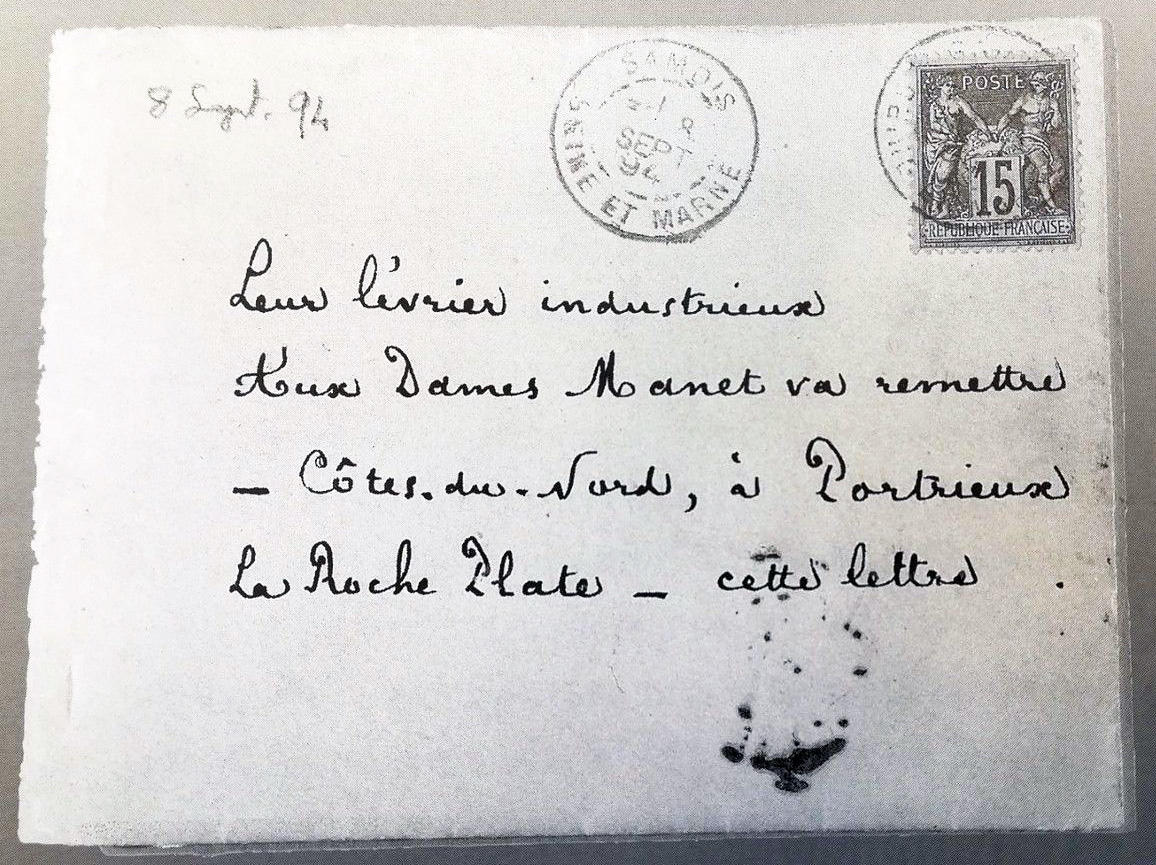 8 Sept. 94
SAMOIS
8
SEPT
94
SEINE ET MARNE
POSTE
15
REPUBLIQUE FRANÇAISE
Leur lévrier industrieux
Aux Dames Manet va remettre
— Côtes-du-Nord, à Portrieux
La Roche Plate — cette lettre .